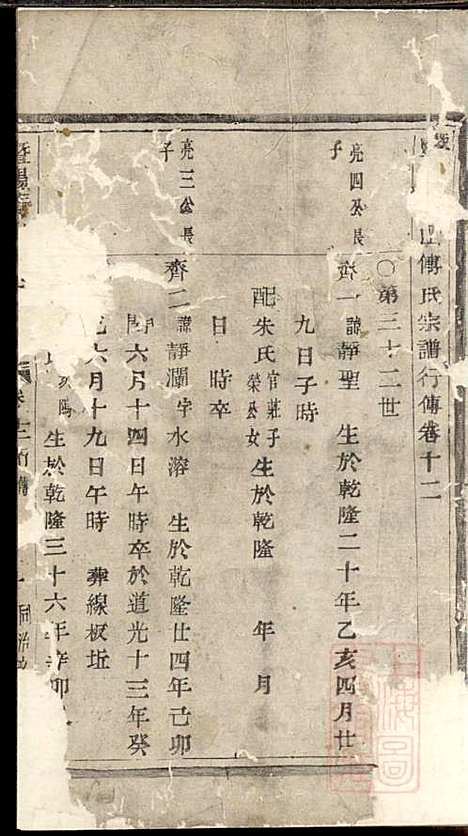 山傅氏宗譜行傳卷十二
○第三十二世
亮四公長子
齊一 諱靜聖 生於乾隆二十年乙亥四月廿
九日子時
配朱氏 官莊子榮公女 生於乾隆 年 月
日 時卒
亮三公長子
齊二 諱靜瀾字水溶 生於乾隆廿四年己卯
六月十四日午時卒於道光十三年癸
巳六月十九日午時 葬線板坵
生於乾隆三十六年辛卯
暨陽
卷十二